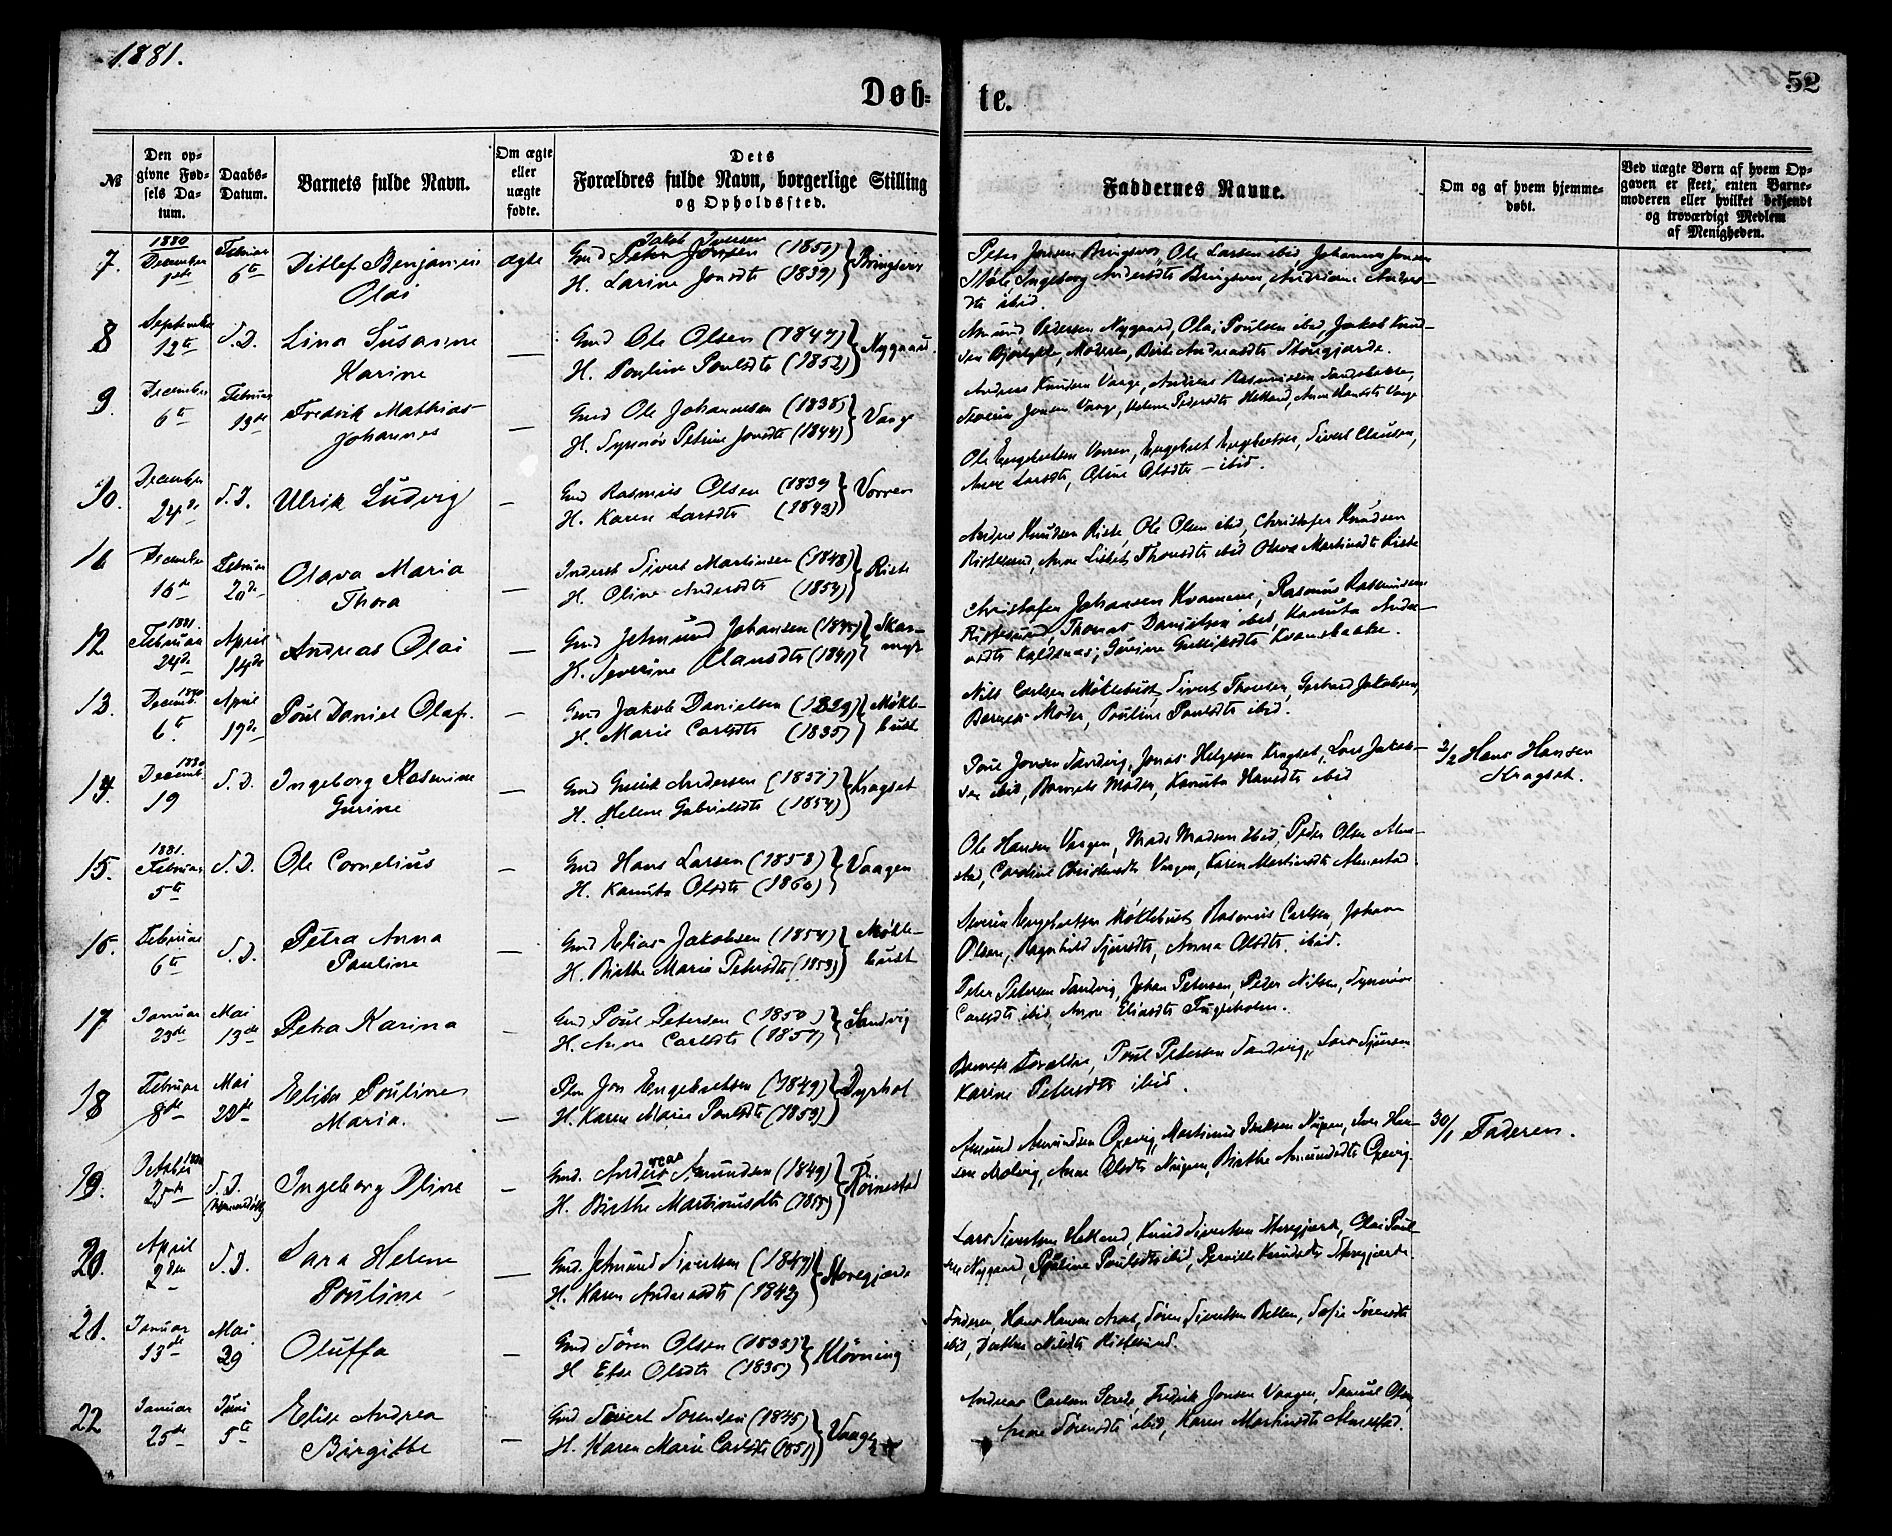 1881.
52
Døb-
te.
№
Den op-
givne Fød-
sels Da-
tum.
Daabs-
Datum.
Barnets fulde Navn.
Om ægte
eller
uægte
fødte.
Dets
Forældres fulde Navn, borgerlige Stilling
og Opholdssted.
Faddernes Navne.
Om og af hvem hjemme-
døbt.
Ved uægte Børn af hvem Op-
gaven er skeet, enten Barne-
moderen eller hvilket bekjendt
og troværdigt Medlem
af Menigheden.
7.
1880
December
Februar
6te
Ditlef Benjamin
Olai
ægte
Jakob Iversen
Gmd (1851)
H. Larine Jonsdtr (1839)
Bringsvor
Peter Jonsen Bringsvor, Ole Larsen ibid, Johannes Jonsen
Støle, Ingeborg Andersdtr Bringsvor, Andriane Anders-
dtr ibid
8
September
12te
S.D.
Lina Susanne
Karine
—
Gmd Ole Olsen (1847)
H. Pouline Poulsdtr (1852)
Nygaard.
Amund Pedersen Nygaard, Olai Poulsen ibid, Jakob Knud-
sen Bjørlykke, Moderen, Berte Andreasdtr Storegjærde.
9.
December
6te
Februar
13de
Fredrik Mathias
Johannes
—
Gmd Ole Johannesen (1838)
H. Synnøv Petrine Jonsdtr (1844)
Vaage
Andreas Knudsen Vaage, Andreas Rasmussen Sandsbakke,
Severin Jonsen Vaage, Helene Pedersdtr Helland, Anne Hansdtr Vaage
10.
December
24de
S.D.
Ulrik Ludvig
—
Gmd Rasmus Olsen (1839
H. Karen Larsdtr (1843)
Vorren
Ole Engebretsen Vorren, Engebret Engebretsen, Sivert Clausen,
Anne Larsdtr, Oline Olsdtr – ibid.
11
December
16de
Februar
20de
Olava Maria
Thora
—
Inderst Sivert Martinsen (1848)
H. Oline Andersdtr (1854)
Riste
Anders Knudsen Riste, Ole Olsen ibid, Christofer Knudsen
Ristesund, Anne Lisbet Thomasdtr ibid, Olava Martinsdtr Riste
12
1881.
Februar
24de
April
14de
Andreas Olai
—
Gmd Jetmund Johansen (1845)
H. Severine Clausdtr (1841)
Skar-
myr
Christofer Johansen Kvamme, Rasmus Rasmussen
Ristesund, Thomas Danielsen ibid, Kanuta Andre-
asdtr Koldsnæs, Gurine Gulliksdtr Kvamsbakke.
13.
1880
Decemb.
6te
April
19de
Poul Daniel Olaf.
—
Gmd Jakob Danielsen (1829)
H. Marie Carlsdtr (1835)
Møkle-
bust
Nils Carlsen Møklebust, Sivert Thoresen, Gerhard Jakobsen,
Barnets Moder, Pouline Poulsdtr ibid.
14.
1880
Decemb.
19
S.D.
Ingeborg Rasmine
Gurine
—
Gmd Gullik Andersen (1851)
H. Helene Gabrielsdtr (1854)
Kragset
Poul Jonsen Sandvig, Jonas Helgesen Kragset, Lars Jakob-
sen ibid, Barnets Moder, Kanuta Hansdtr ibid
2/2 Hans Hansen
Kragset.
15.
1881.
Februar
5te
S.D.
Ole Cornelius
—
Gmd Hans Larsen (1858)
H. Kanuta Olsdtr (1860)
Vaagen
Ole Hansen Vaagen, Mads Madsen ibid, Peder Olsen Alme-
stad, Caroline Christensdtr Vaagen, Karen Martinsdtr Almestad.
16.
Februar
6te
S.D.
Petra Anna
Pauline
—
Gmd Elias Jakobsen (1854)
H. Birthe Marie Petersdtr (1853)
Møkle-
bust
Severin Engebretsen Møklebust, Rasmus Carlsen, Johan
Olsen, Ragnhild Sjursdtr, Anna Olsdtr, ibid.
17
Januar
23de
Mai
13de
Petra Karina
—
Gmd Poul Petersen (1850)
H. Anna Carlsdtr (1857)
Sandvig
Peter Petersen Sandvig, Johan Petersen, Peder Nilsen, Synnøve
Carlsdtr ibid, Anne Eliasdtr Flugeholm.
18
Februar
8de
Mai
22de
Elisa Pouline
Maria.
—
Pln Jon Engebretsen (1849)
H. Karen Marie Poulsdtr (1853)
Dyrhol
Barnets Forældre, Poul Petersen Sandvig, Lars Sjursen
Karine Petersdtr ibid.
19.
October 1880
25de
S.D.
Ingeborg Oline
—
Gmd. Andreas Amundsen (1849)
H. Birthe Martinusdtr (1855)
Røinestad
Amund Amundsen Opevig, Martinus Iversen Nupen, Iver Han-
sen Molvig, Anne Olsdtr Nupen, Birthe Amundsdtr Opevig
30/1 Faderen.
20.
April
2den
S.D.
Sara Helene
Pouline
—
Gmd. Jetmund Sivertsen (1847)
H. Karen Andreasdtr (1843)
Storegjærde
Lars Sivertsen Helland, Knud Sivertsen Storegjærde, Olai Poul-
sen Nygaard, Pouline Poulsdtr ibid, Pernille Knudsdtr Storegjærde.
21.
Januar
13de
Mai
29
Oluffa
—
Gmd Sören Olsen (1833)
H Else Olsdtr (1835)
Kløvning
Faderen, Hans Hansen Aras, Sören Sivertsen Botten, Sofie Sörensdtr
ibid, Dorthea Nilsdtr Ristesund.
22
Januar
25de
Juni
5te
Elise Andrea
Birgitte
—
Gmd Sivert Sorensen (1845)
H. Karen Marie Carlsdtr (1851)
Vaage
Andreas Carlsen Berge, Fredrik Jonsen Vaagen, Samuel Olsen
Anne Sörensdtr ibid, Karen Martinsdtr Almestad.